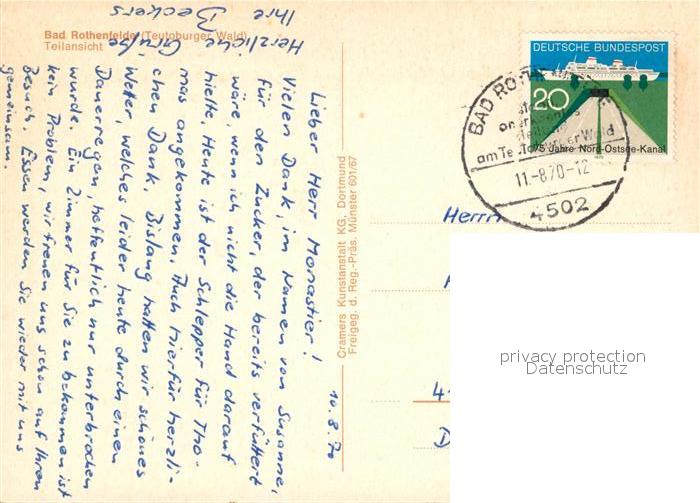 Bad Rothenfelde (Teutoburger Wald)
Teilansicht
10.8.70
Lieber Herr Monastier!
Vielen Dank, im Namen von Susanne,
für den Zucker, der bereits verfüttert
wäre, wenn ich nicht die Hand darauf
hielte. Heute ist der Schlepper für Tho-
mas angekommen. Auch hierfür herzli-
chen Dank. Bislang hatten wir schönes
Wetter, welches leider heute durch einen
Dauerregen, hoffentlich nur unterbrochen
wurde. Ein Zimmer für Sie zu bekommen ist
kein Problem, wir freuen uns schon auf Ihren
Besuch. Essen werden Sie wieder mit uns
gemeinsam.
Herzliche Grüße
Ihre Beckers
Cramers Kunstanstalt KG, Dortmund
Freigeg. d. Reg.-Präs. Münster 601/67
DEUTSCHE BUNDESPOST
20
75 Jahre Nord-Ostsee-Kanal
1970
BAD
am Wald
11.-8.70-12
4502
Herrn
4
D
privacy protection
Datenschutz